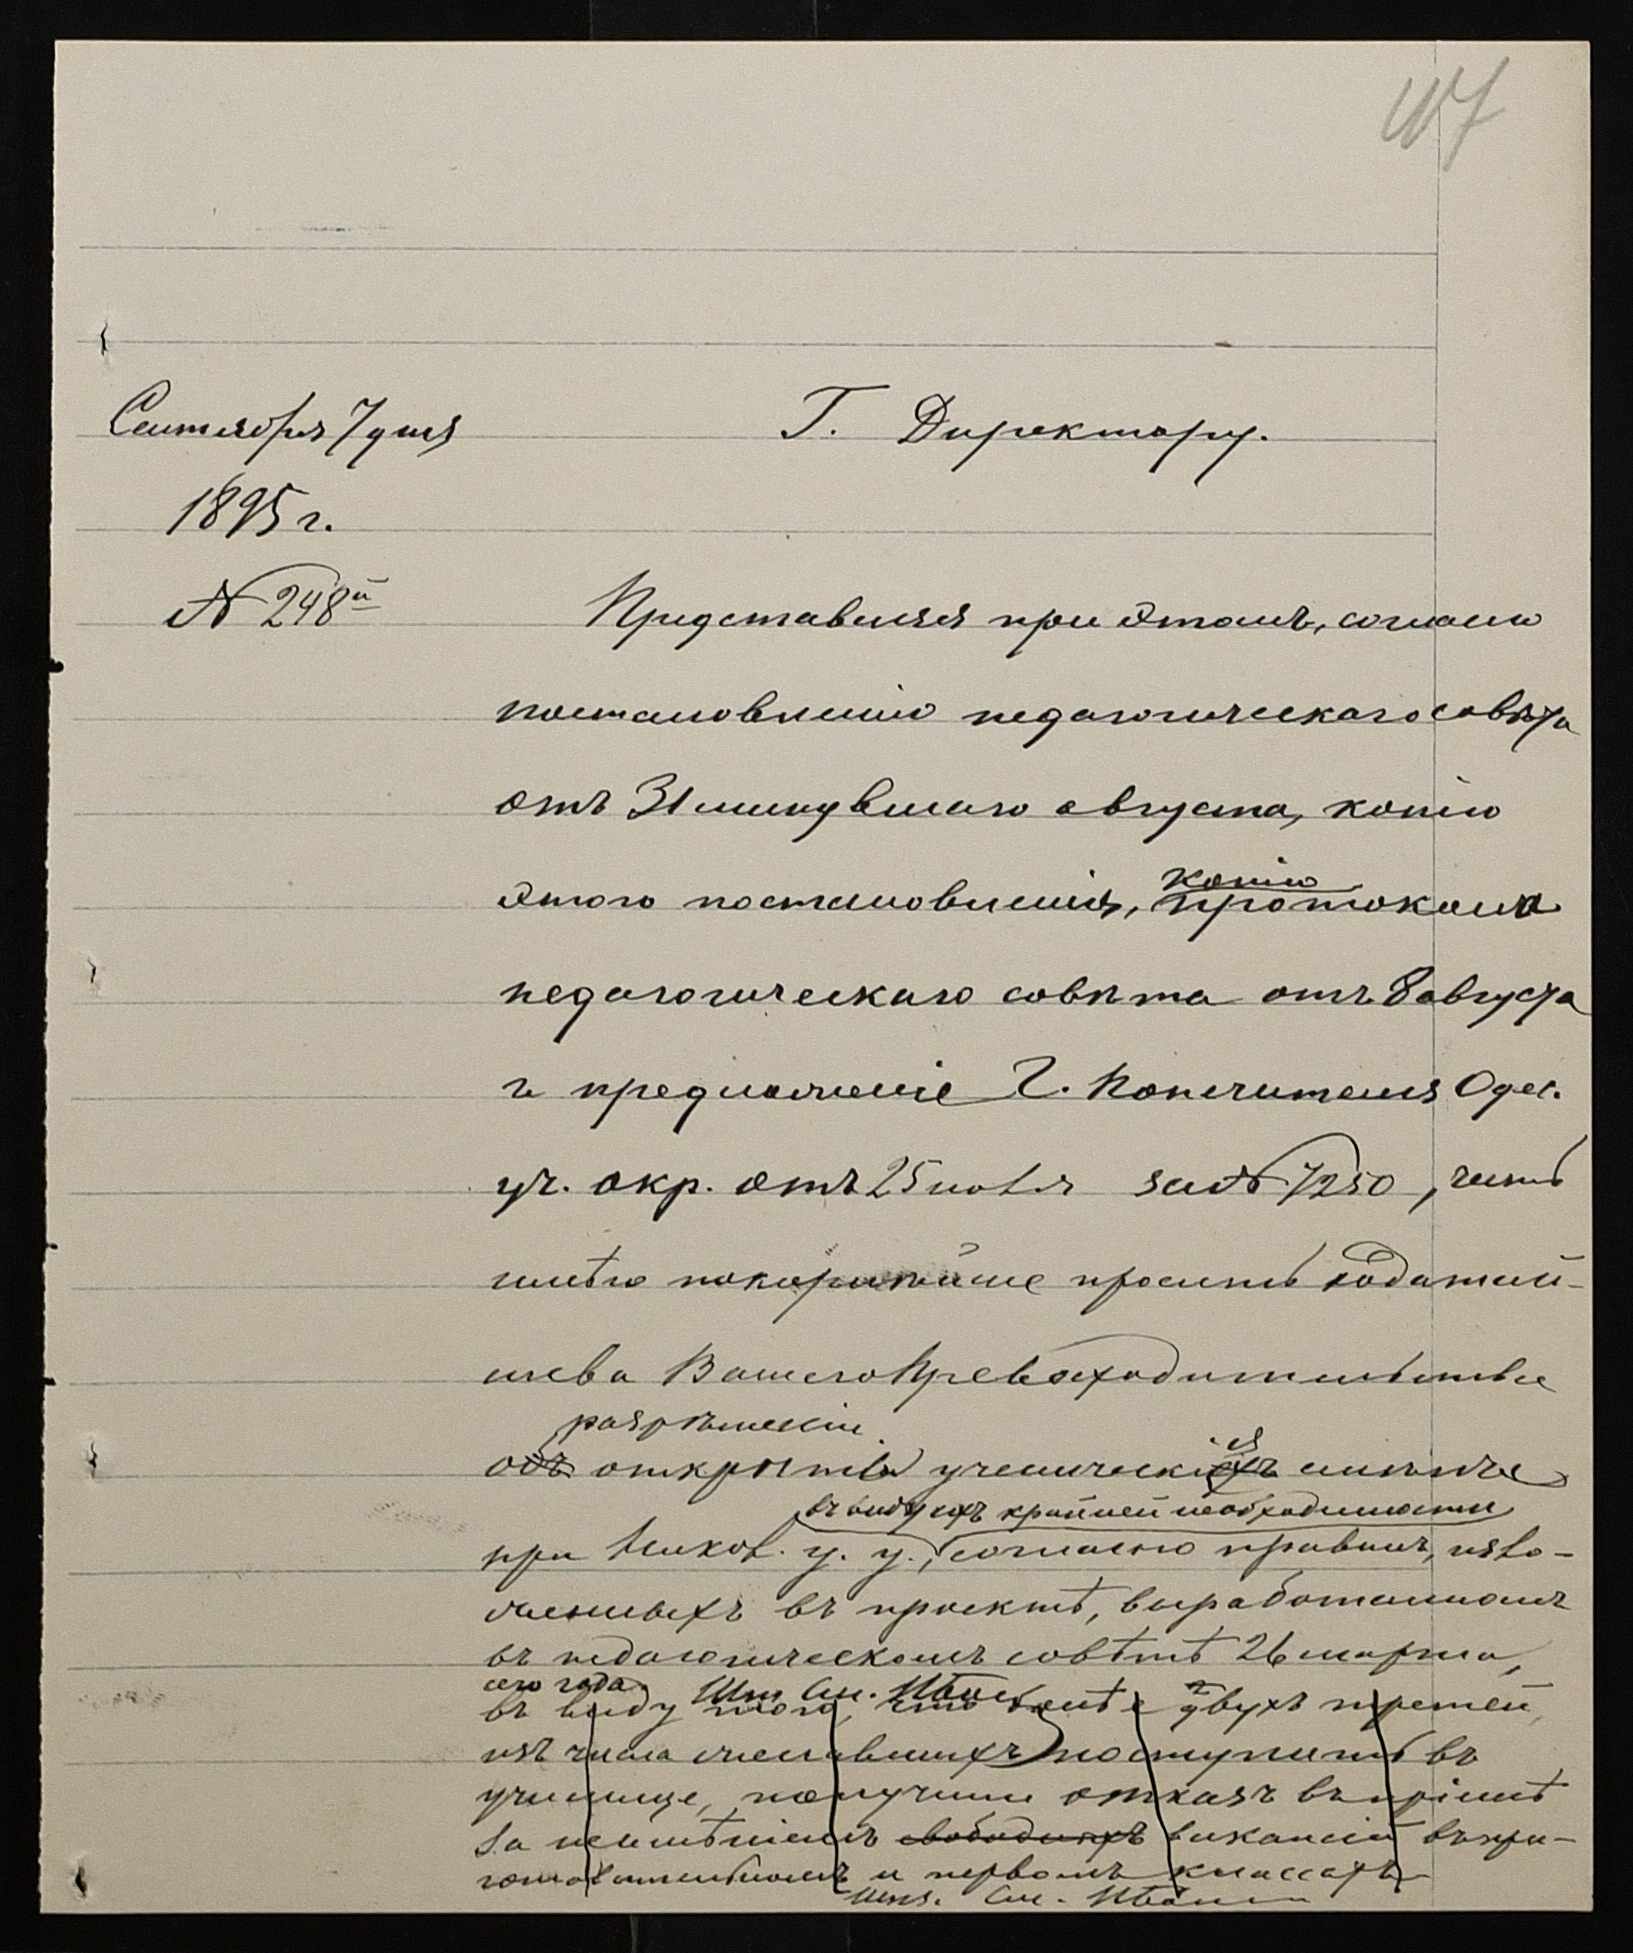 117
Сентября 7 дня
1895 г.
№ 248й
Г. Директору.
Представляя при этомъ, согласно
постановленію педагогическаго совѣта
отъ 31 минувшаго августа, копію
этого постановленія, копію протокола
педагогическаго совѣта отъ 8 августа
и предложеніе Г. Попечителя Одес.
уч. окр. отъ 25 іюля за № 7250, честь
имѣю покорнѣйше просить ходатай-
ства Вашего Превосходительства
разрѣшеніи
объ открытія ученической
при у. у., согласно правилъ, изло-
въ виду ихъ крайней необходимости
женныхъ въ проектѣ, выработанномъ
въ педагогическомъ совѣтѣ 26 марта,
сего года. Шт. См. Ив
въ виду того, что болѣе двухъ третей,
изъ числа желавшихъ поступить въ
училище, получили отказъ въ пріемѣ
за неимѣніемъ свободныхъ вакансій въ при-
готовительномъ и первомъ классахъ
Шт. См. Ив